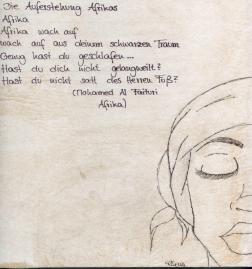 Die Auferstehung Afrikas
Afrika
Afrika wach auf
wach auf aus deinem schwarzen Traum
Genug hast du geschlafen...
Hast du dich nicht gelangweilt?
Hast du nicht satt des Herren Fuß?
(Mohamed Al Faituri
Afrika)